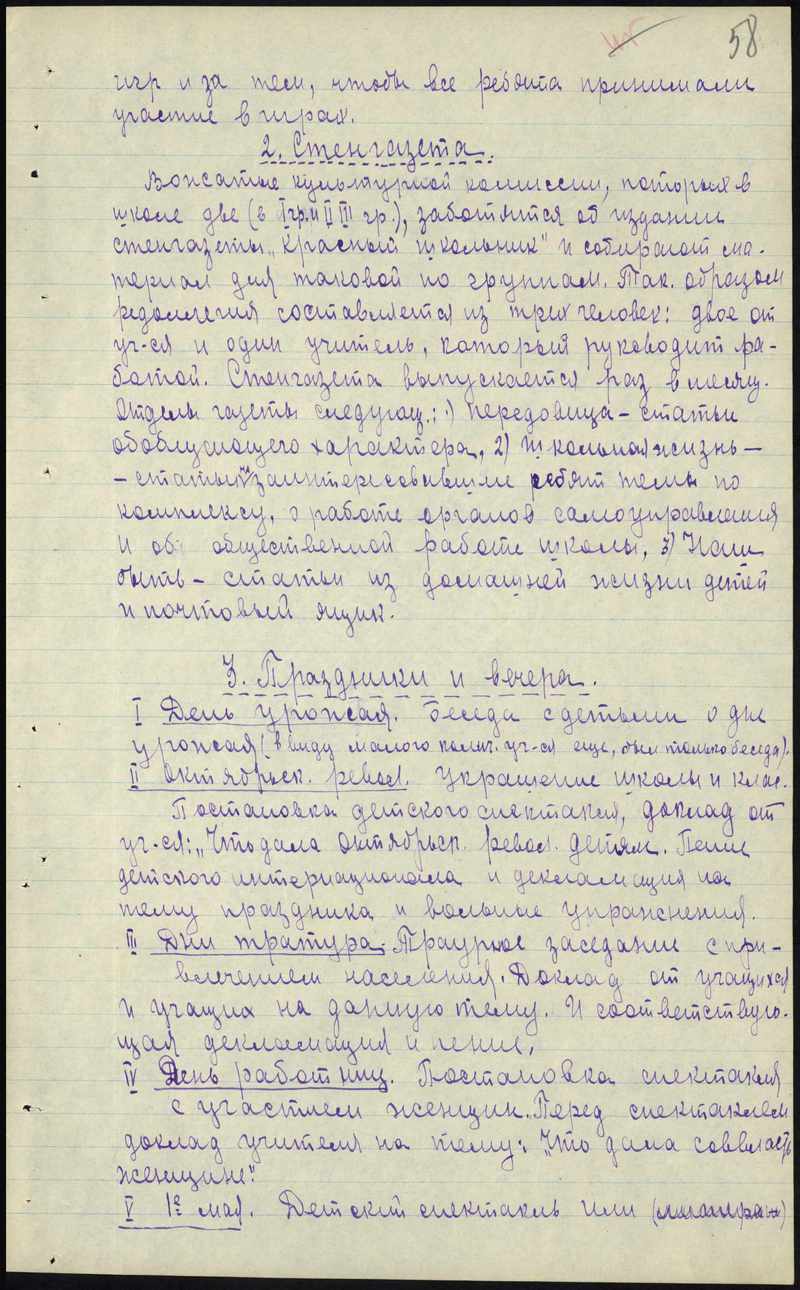 58
игр и за тем, чтобы все ребята принимали
участие в играх.
2. Стенгазета.
Вожатые культурной комиссии, которых в
школе две (в I гр. и II III гр.), заботятся об издании
стенгазеты „Красный школьник" и собирают ма-
териал для таковой по группам. Так. образом
редколлегия составляется из трех человек: двое от
уч-ся и один учитель, который руководит ра-
ботой. Стенгазета выпускается раз в месяц.
Отделы газеты следующ.: 1) Передовица – статьи
обобщающего характера, 2) Школьная жизнь –
– статьи заинтересовавшие ребят темы по
комплексу, о работе органов самоуправления
и об общественной работе школы, 3) Наш
быть – статьи из домашней жизни детей
и почтовый ящик.
3. Праздники и вечера.
I День урожая. Беседа с детьми о дне
урожая (в виду малого колич. уч-ся еще, был только беседа).
II Октябрьск. револ. Украшение школы и клас.
Постановка детского спектакля, доклад от
уч-ся: „Что дала Октябрьск. револ. детям. Пение
детского интернационала и декламация на
тему праздника и вольные упражнения.
III Дни тратура. Траурное заседание с при-
влечением населения. Доклад от учащихся
и учащих на данную тему. И соответствую-
щая декламация и пение.
IV День работниц. Постановка спектакля
с участием женщин. Перед спектаклем
доклад учителя на тему: „Что дала соввласть
женщине".
V 1е мая. Детский спектакль или